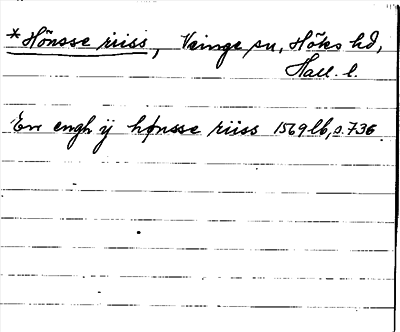 *Hönsse riiss, Veinge sn, Höks hd,
Hall. l.
En engh ÿ hønsse riiss 1569 lb, s. 736.